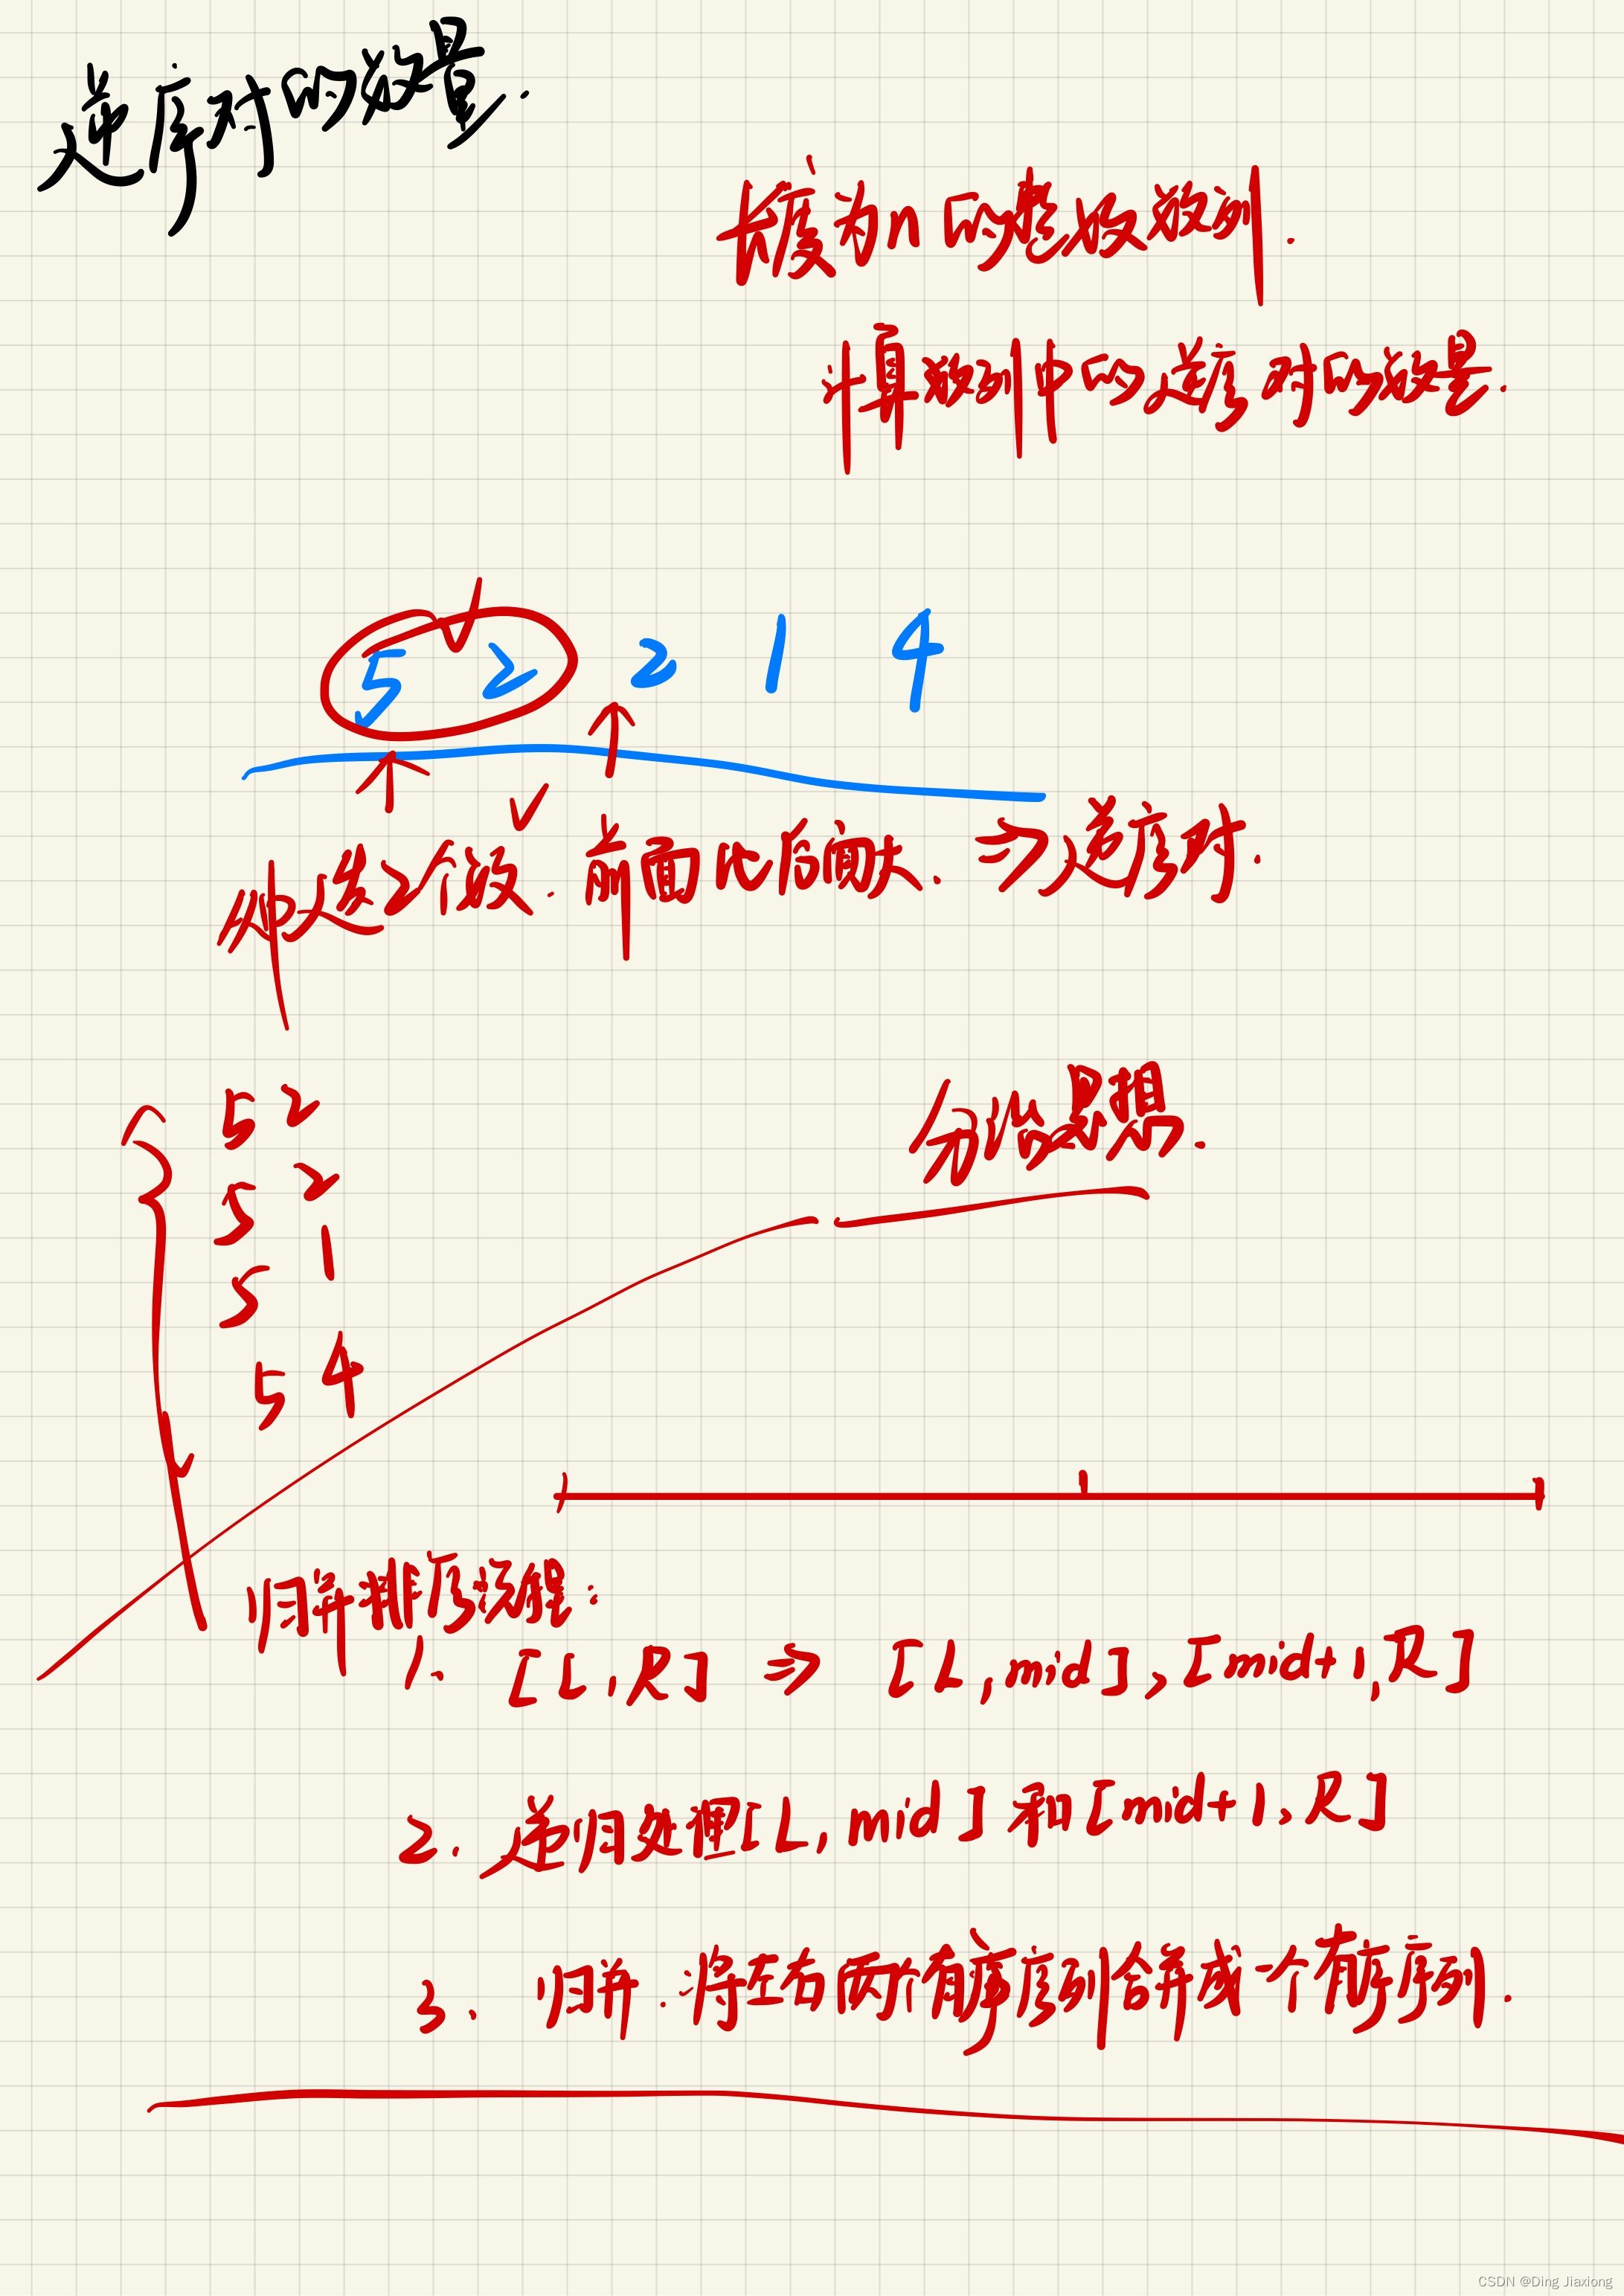 逆序对的数量.
长度为n的整数数列.
计算数列中的逆序对的数量.
5 2 2 1 4
2个数. 前面比后面大. ⇒逆序对.
5 2
5 2
5 1
5 4
分治思想.
归并排序流程:
1. [L,R] ⇒ [L,mid], [mid+1,R]
2. 递归处理[L,mid]和[mid+1,R]
3. 归并. 将左右两个有序序列合并成一个有序序列.
CSDN @Ding Jiaxiong